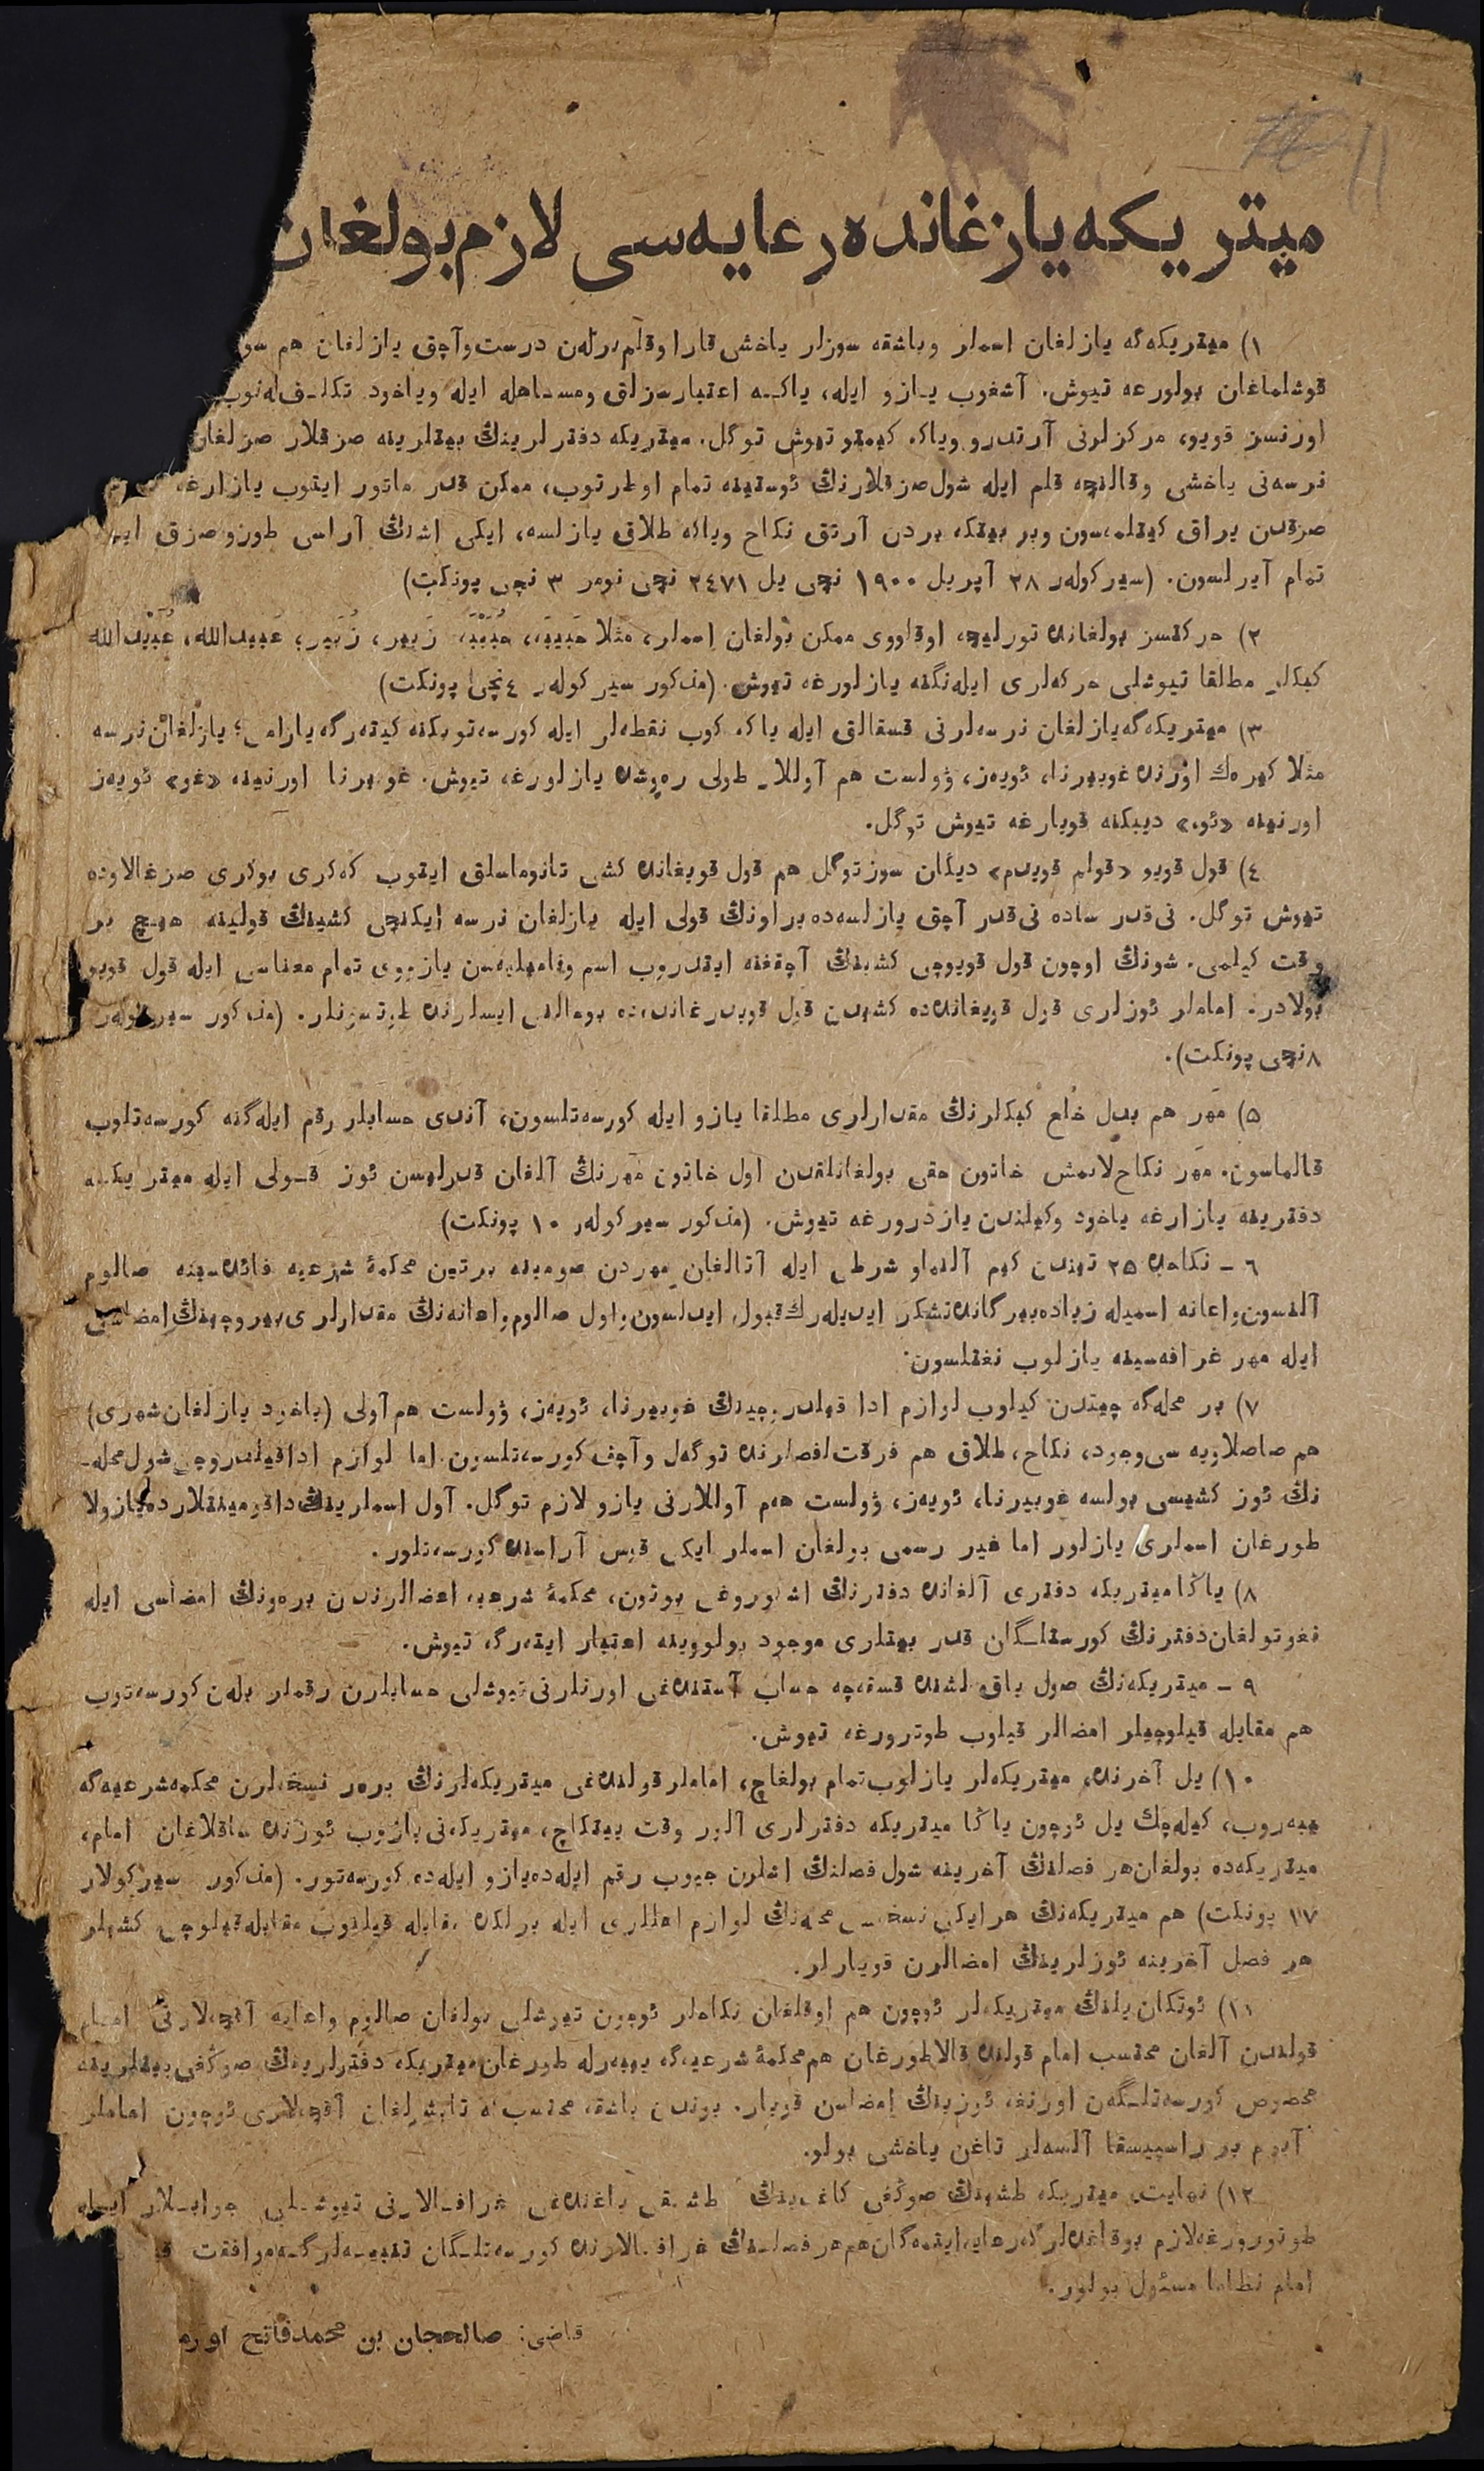 11
ميتريكه يازغانده رعايه‌سى لازم بولغان
١) ميتريكه‌گه يازلغان اسملر وباشقه سوزلر ياخشى قارا وقلم برلەن درست وآچق يازلغان هم سو
قوشلماغان بولورغه تيوش. آشغوب يازو ايله، ياكه اعتبارسزلق ومساهله ايله وياخود تكلف‌له‌نوب
اورنسز قويو، مركزلرنى آرتدرو وياكه كيمتو تيوش توگل. ميتريكه دفترلرينڭ بيتلرينه صزقلار صزلغان
نرسه‌نى ياخشى وقالنچه قلم ايله شول صزقلارنڭ ئوستينه تمام اوطرتوب، ممكن قدر ماتور ايتوب يازارغه
صزقدن يراق كيتلمه‌سون وبر بيتكه بردن آرتق نكاح وياكه طلاق يازلسه، ايكى اشنڭ آراسى طوزو صزق ايله
تمام آيرلسون. (سيركولەر ٢٨ آپريل ١٩٠٠ نچى يل ٢٤٧١ نچى نومر ٣ نچى پونكت)
٢) حركتسز بولغانده تورليچه اوقلووى ممكن بولغان اسملر، مثلا حَبيبَه، حُبَيْبَه، زَبير، زُبَير؛ عَبيدالله، عُبَيْدالله
كبكلر مطلقا تيوشلى حركه‌لرى ايله‌نگنه يازلورغه تيوش. (مذكور سيركولەر ٤نچى پونكت)
٣) ميتريكه‌گه يازلغان نرسه‌لرنى قسقالق ايله ياكه كوب نقطه‌لر ايله كورسه‌توبكنه كيته‌رگه يارامى؛ يازلغان نرسه
مثلا كيره‌ك اورنده غوبيرنا، ئويه‌ز، ۋولست هم آوللار طولى ره‌وشده يازلورغه تيوش. غوبيرنا اورنينه «غو» ئويه‌ز
اورنينه «ئو.» ديبكنه قويارغه تيوش توگل.
٤) قول قويو «قولم قويدم» ديگان سوز توگل هم قول قويغانده كشى تانوماسلق ايتوب كه‌كرى بوكرى صزغالاوده
تيوش توگل. نى‌قدر ساده نى‌قدر آچق يازلسه‌ده براونڭ قولى ايله يازلغان نرسه ايكنچى كشينڭ قولينه هيچ بر
وقت كيلمى. شونڭ اوچون قول قويوچى كشينڭ آچقغنه ايتدروب اسم وفاميليه‌سن يازووى تمام معناسى ايله قول قويو
بولادر. اماملر ئوزلرى قول قويغانده‌ده كشيدن قول قويدرغانده‌ده بوحالنى ايسلرنده طوتسونلر. (مذكور سيركولەر
٨نچى پونكت).
٥) مهر هم بدل خلع كبكلرنڭ مقدارلرى مطلقا يازو ايله كورسه‌تلسون، آندى حسابلر رقم ايله‌گنه كورسه‌تلوب
قالماسون. مهر نكاح‌لانمش خاتون حقى بولغانلقدن اول خاتون مهرنڭ آلغان قدرليسن ئوز قولى ايله ميتريكه
دفترينه يازارغه ياخود وكيلندن يازدرورغه تيوش. (مذكور سيركولەر ١٠ پونكت)
٦ ــ نكاحده ٢٥ تيندن كيم آلنماو شرطى ايله آتالغان مهردن صومينه برتين محكمهٔ شرعيه فائده‌سينه صالوم
آلنسون واعانه اسميله زياده بيرگانده تشكر ايدیله‌رك قبول ايدلسون واول صالوم واعانه‌نڭ مقدارلرى بيروچينڭ امضاسى
ايله مهر غرافه‌سينه يازلوب نغتلسون.
٧) بر محله‌گه چيتدن كيلوب لوازم ادا قيلدروچينڭ غوبيرنا، ئويه‌ز، ۋولست هم آولى (ياخود يازلغان شهرى)
هم صاصلاويه سى وجود، نكاح، طلاق هم فرقت لفصلرنده توگەل وآچق كورسه‌تلسون. اما لوازم ادا قيلدروچى شول محله‌ـ
نڭ ئوز كشيسى بولسه غوبيرنا، ئويه‌ز، ۋولست هم آوللارنى يازو لازم توگل. آول اسملرينڭ داقومينتلارده يازولا
طورغان اسملرى يازلور اما غير رسمى بولغان اسملر ايكى قوس آراسنده كورسه‌تلور.
٨) ياڭا ميتريكه دفترى آلغانده دفترنڭ اشلوروغى بوتون، محكمهٔ شرعيه اعضالرندن بره‌ونڭ امضاسى ايله
نغوتولغان دفترنڭ كورستلگان قدر بيتلرى موجود بولووينه اعتبار ايته‌رگه تيوش.
٩ ــ ميتريكه‌نڭ صول ياق لشنده قسقه‌چه حساب آستنده‌غى اورنلرنى تيوشلى حسابلرن رقملر بله‌ن كورسه‌توب
هم مقابله قيلوچيلر امضالر قيلوب طوترورغه تيوش.
١٠) يل آخرنده، ميتريكه‌لر يازلوب تمام بولغاچ، اماملر قولنده‌غى ميتريكه‌لرنڭ برەر نسخه‌لرن محكمه شرعيه‌گه
ييبه‌روب، كيله‌چك يل ئوچون ياڭا ميتريكه دفترلرى آلور وقت ييتكاچ، ميتريكه‌نى يازوب ئوزنده ساقلاغان امام،
ميتريكه‌ده بولغان هر فصلنڭ آخرينه شول فصلنڭ اشلرن جيوب رقم ايله‌ده يازو ايله‌ده كورسه‌تور. (مذكور سيركولار
١٧ پونكت) هم ميتريكه‌نڭ هر ايكى نسخه‌سى محله‌نڭ لوازم اهللرى ايله برلكده مقابله قيلنوب مقابله قيلوچى كشيلر
هر فصل آخرينه ئوزلرينڭ امضالرن قويارلر.
١١) ئوتكان يلنڭ ميتريكه‌لر ئوچون هم اوقلغان نكاحلر ئوچون تيوشلى بولغان صالوم واعانه آقچه‌لارنى امام
قولندن آلغان محتسب امام قولنده قالاطورغان هم محكمهٔ شرعيه‌گه ييبه‌رله طورغان ميتريكه دفترلرينڭ صوڭغى بيتلرينه
مخصوص كورسه‌تلگه‌ن اورنغه ئوزينڭ امضاسن قويار. بوندن باشقه محتسب‌كه تابشرلغان آقچه‌لارى ئوچون اماملر
آيرم بر راسپيسقا آلسه‌لر تاغن ياخشى بولو.
١٢) نهايت، ميتريكه طشينڭ صوڭغى كاغدينڭ طشقى ياغنده‌غى غرافالارنى تيوشلى جوابلار ايله
طوتورورغه لازم بوقاغده‌لرگه رعايه ايتمه‌گان هم هر فصلنڭ غرافالارنده كورسه‌تلگان تنبيه‌لرگه موافقت
امام نظاما مسئول بولور.
قاضى: صالحجان بن محمدفاتح اورە